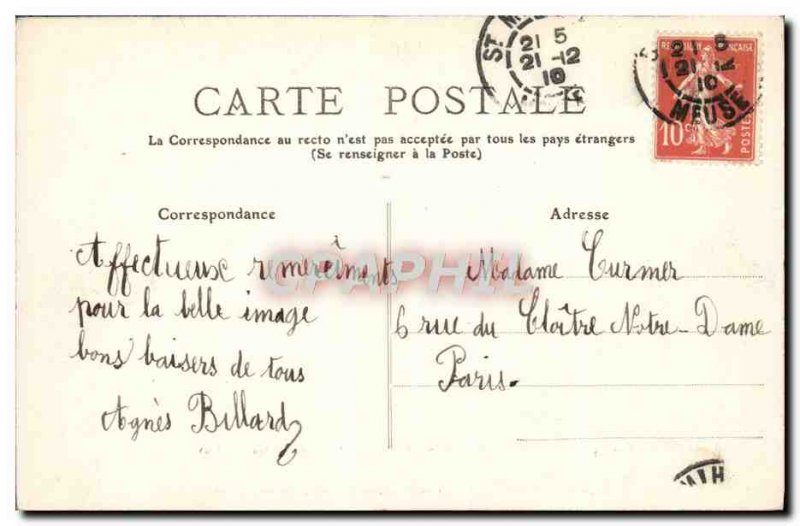 CARTE POSTALE
La Correspondance au recto n'est pas acceptée par tous les pays étrangers
(Se renseigner à la Poste)
Correspondance
Affectueuse remerciments
pour la belle image
bons baisers de tous
Agnès Billard
Adresse
Madame Curmer
6 rue du Cloître Notre-Dame
Paris.
21 5
21-12
10
MEUSE
10c
POSTES
CPAPHIL